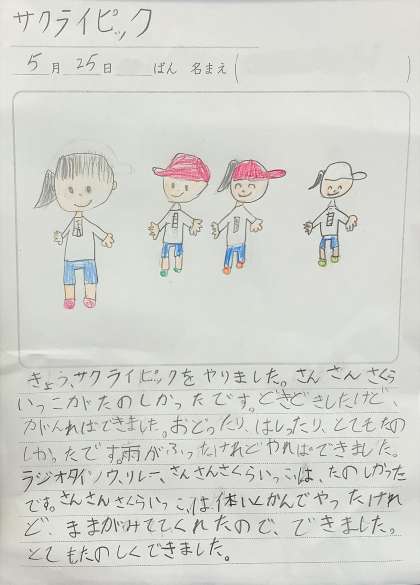 サクライピック
5月25日 ばん 名まえ( )
きょう、サクライピックをやりました。さんさんさくら
いっこがたのしかったです。どきどきしたけど、
がんばればできました。おどったり、はしったり、とてもたの
しかったです。雨がふったけれどやればできました。
ラジオタイソウ、リレー、さんさんさくらいっこは、たのしかった
です。さんさんさくらいっこは体いくかんでやったけれ
ど、ままがみててくれたので、できました。
とてもたのしくできました。